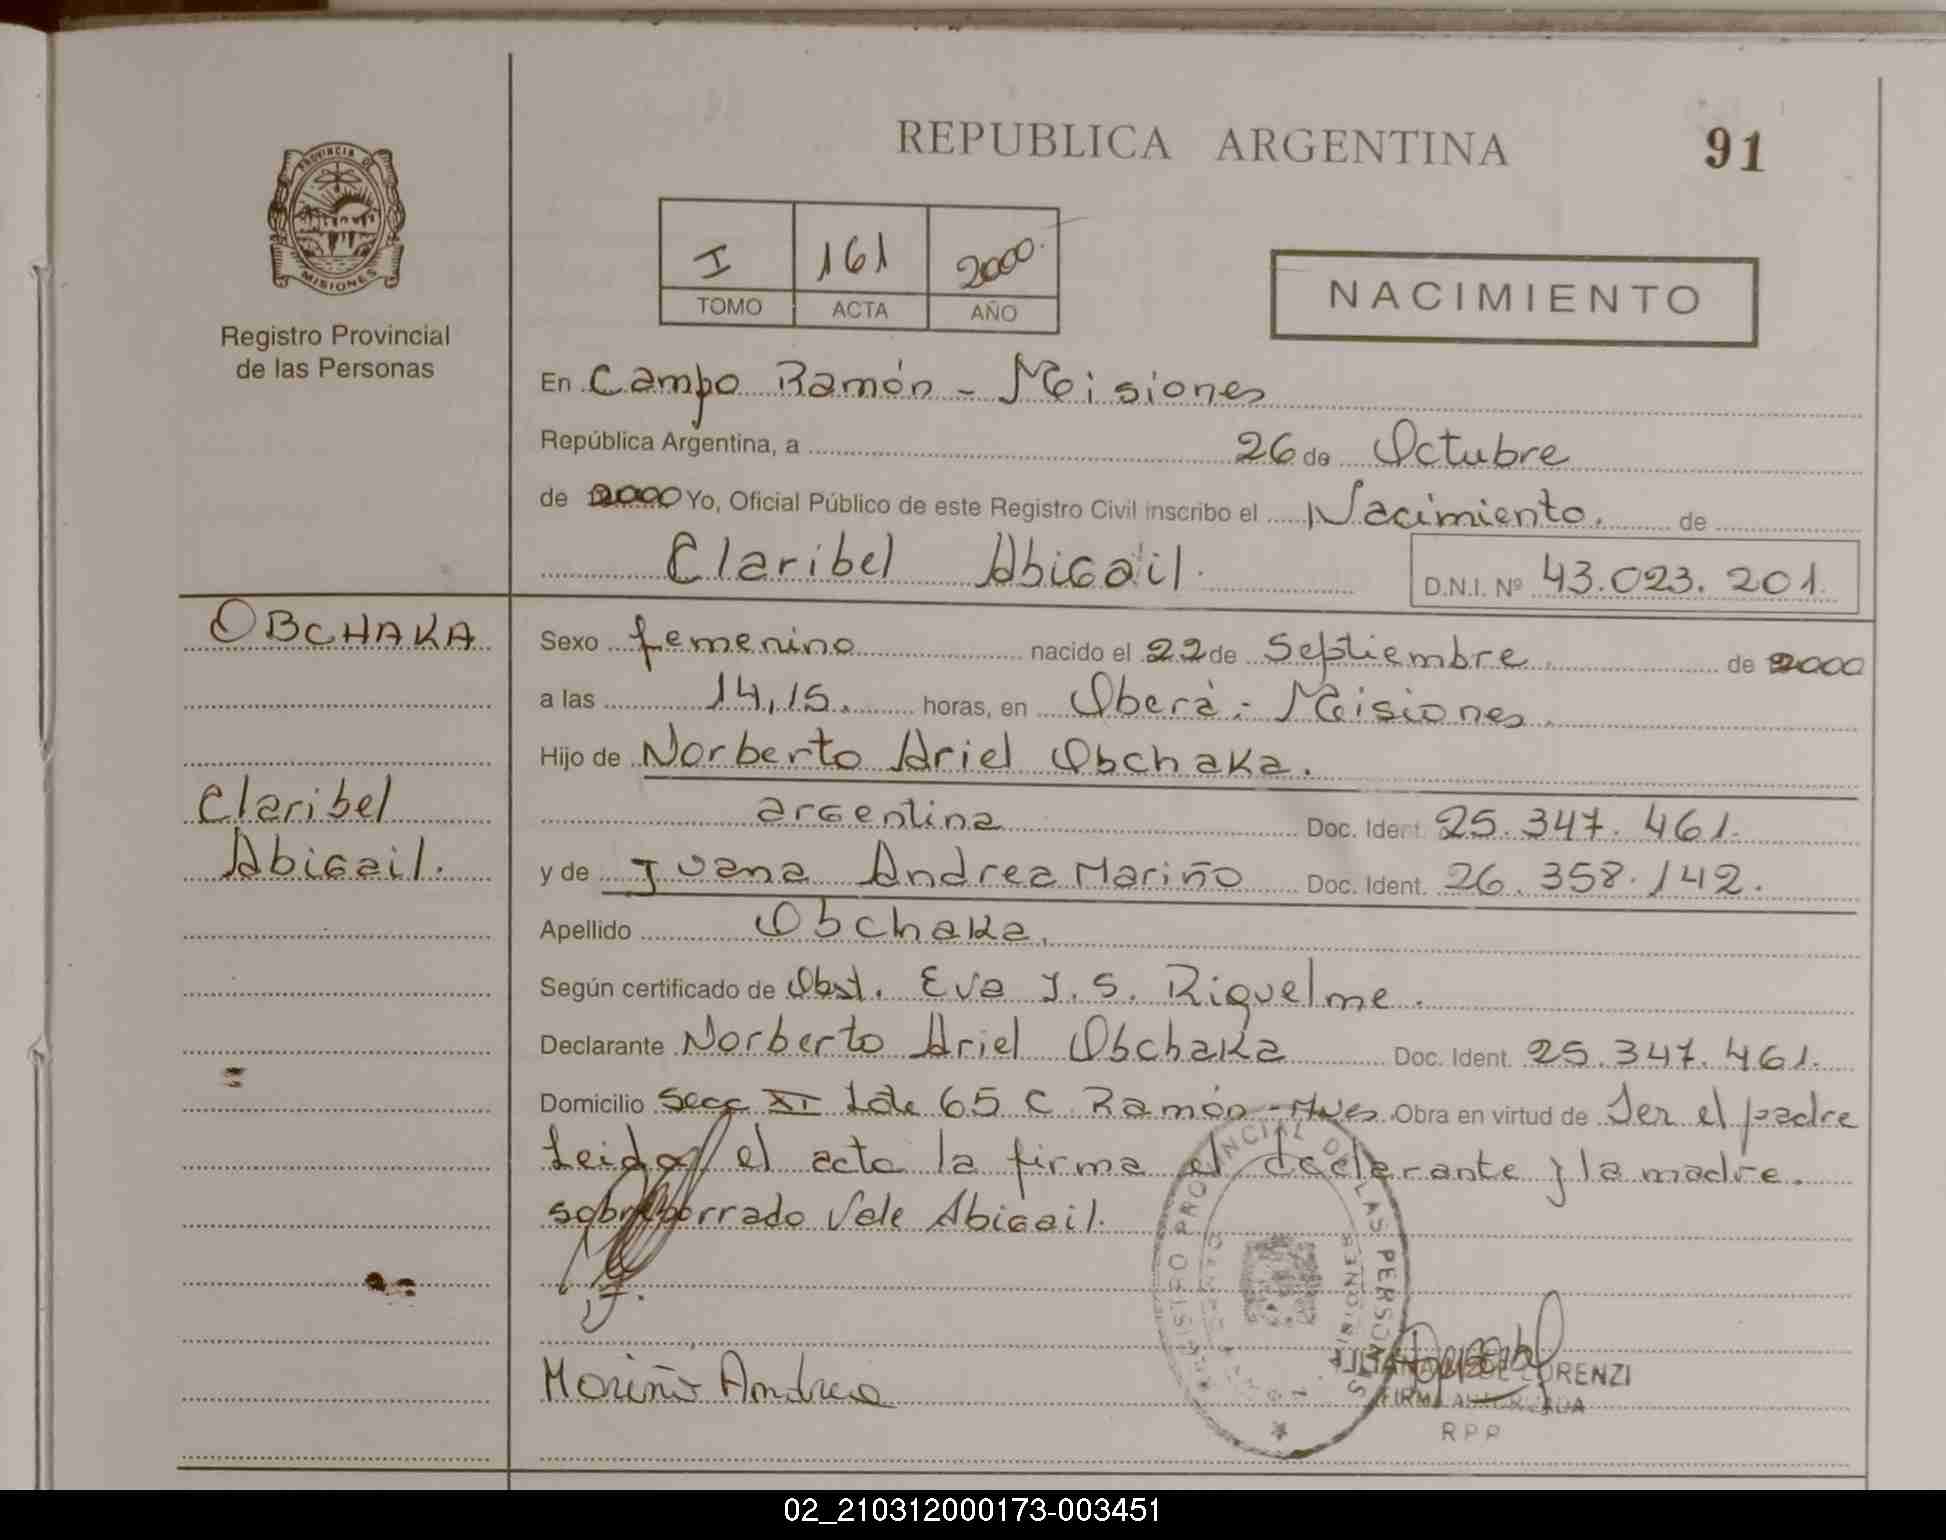 REPUBLICA ARGENTINA
91
PROVINCIA DE
MISIONES
Registro Provincial
de las Personas
I 161 2000.
TOMO ACTA AÑO
NACIMIENTO
En Campo Ramón - Misiones
República Argentina, a 26 de Octubre
de 2000 Yo, Oficial Público de este Registro Civil inscribo el Nacimiento. de
Claribel Abigail. D.N.I. Nº 43.023.201.
OBCHAKA
Claribel
Abigail.
Sexo femenino nacido el 22 de Septiembre de 2000
a las 14,15. horas, en Oberá - Misiones.
Hijo de Norberto Ariel Obchaka.
argentina Doc. Ident. 25.347.461.
y de Juana Andrea Mariño Doc. Ident. 26.358.142.
Apellido Obchaka.
Según certificado de Obst. Eva J. S. Riquelme.
Declarante Norberto Ariel Obchaka Doc. Ident. 25.347.461.
Domicilio Secc XI Lote 65 C. Ramón - Mnes. Obra en virtud de Ser el padre
Leida el acta la firma el declarante y la madre.
sobreborrado Vale Abigail.
REGISTRO PROVINCIAL DE LAS PERSONAS
MISIONES
Mariño Andrea
LORENZI
FIRMA AUTORIZADA
RPP
02_210312000173-003451